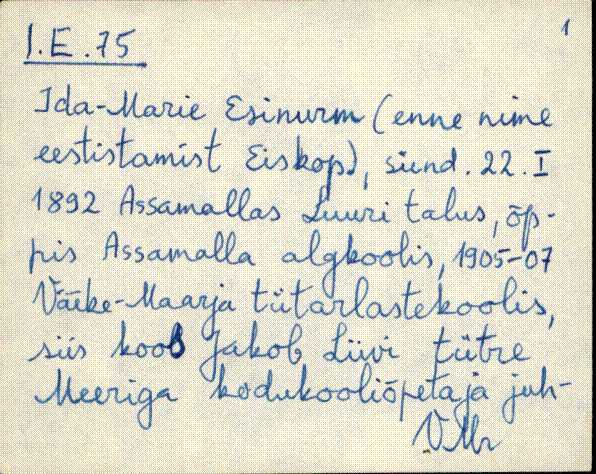 I.E.75
1
Ida-Marie Esinurm (enne nime
eestistamist Eiskop), sünd. 22. I
1892 Assamallas Luuri talus, õp-
pis Assamalla algkoolis, 1905-07
Väike-Maarja tütarlastekoolis,
siis koos Jakob Liivi tütre
Meeriga kodukooliõpetaja juh-
VMr